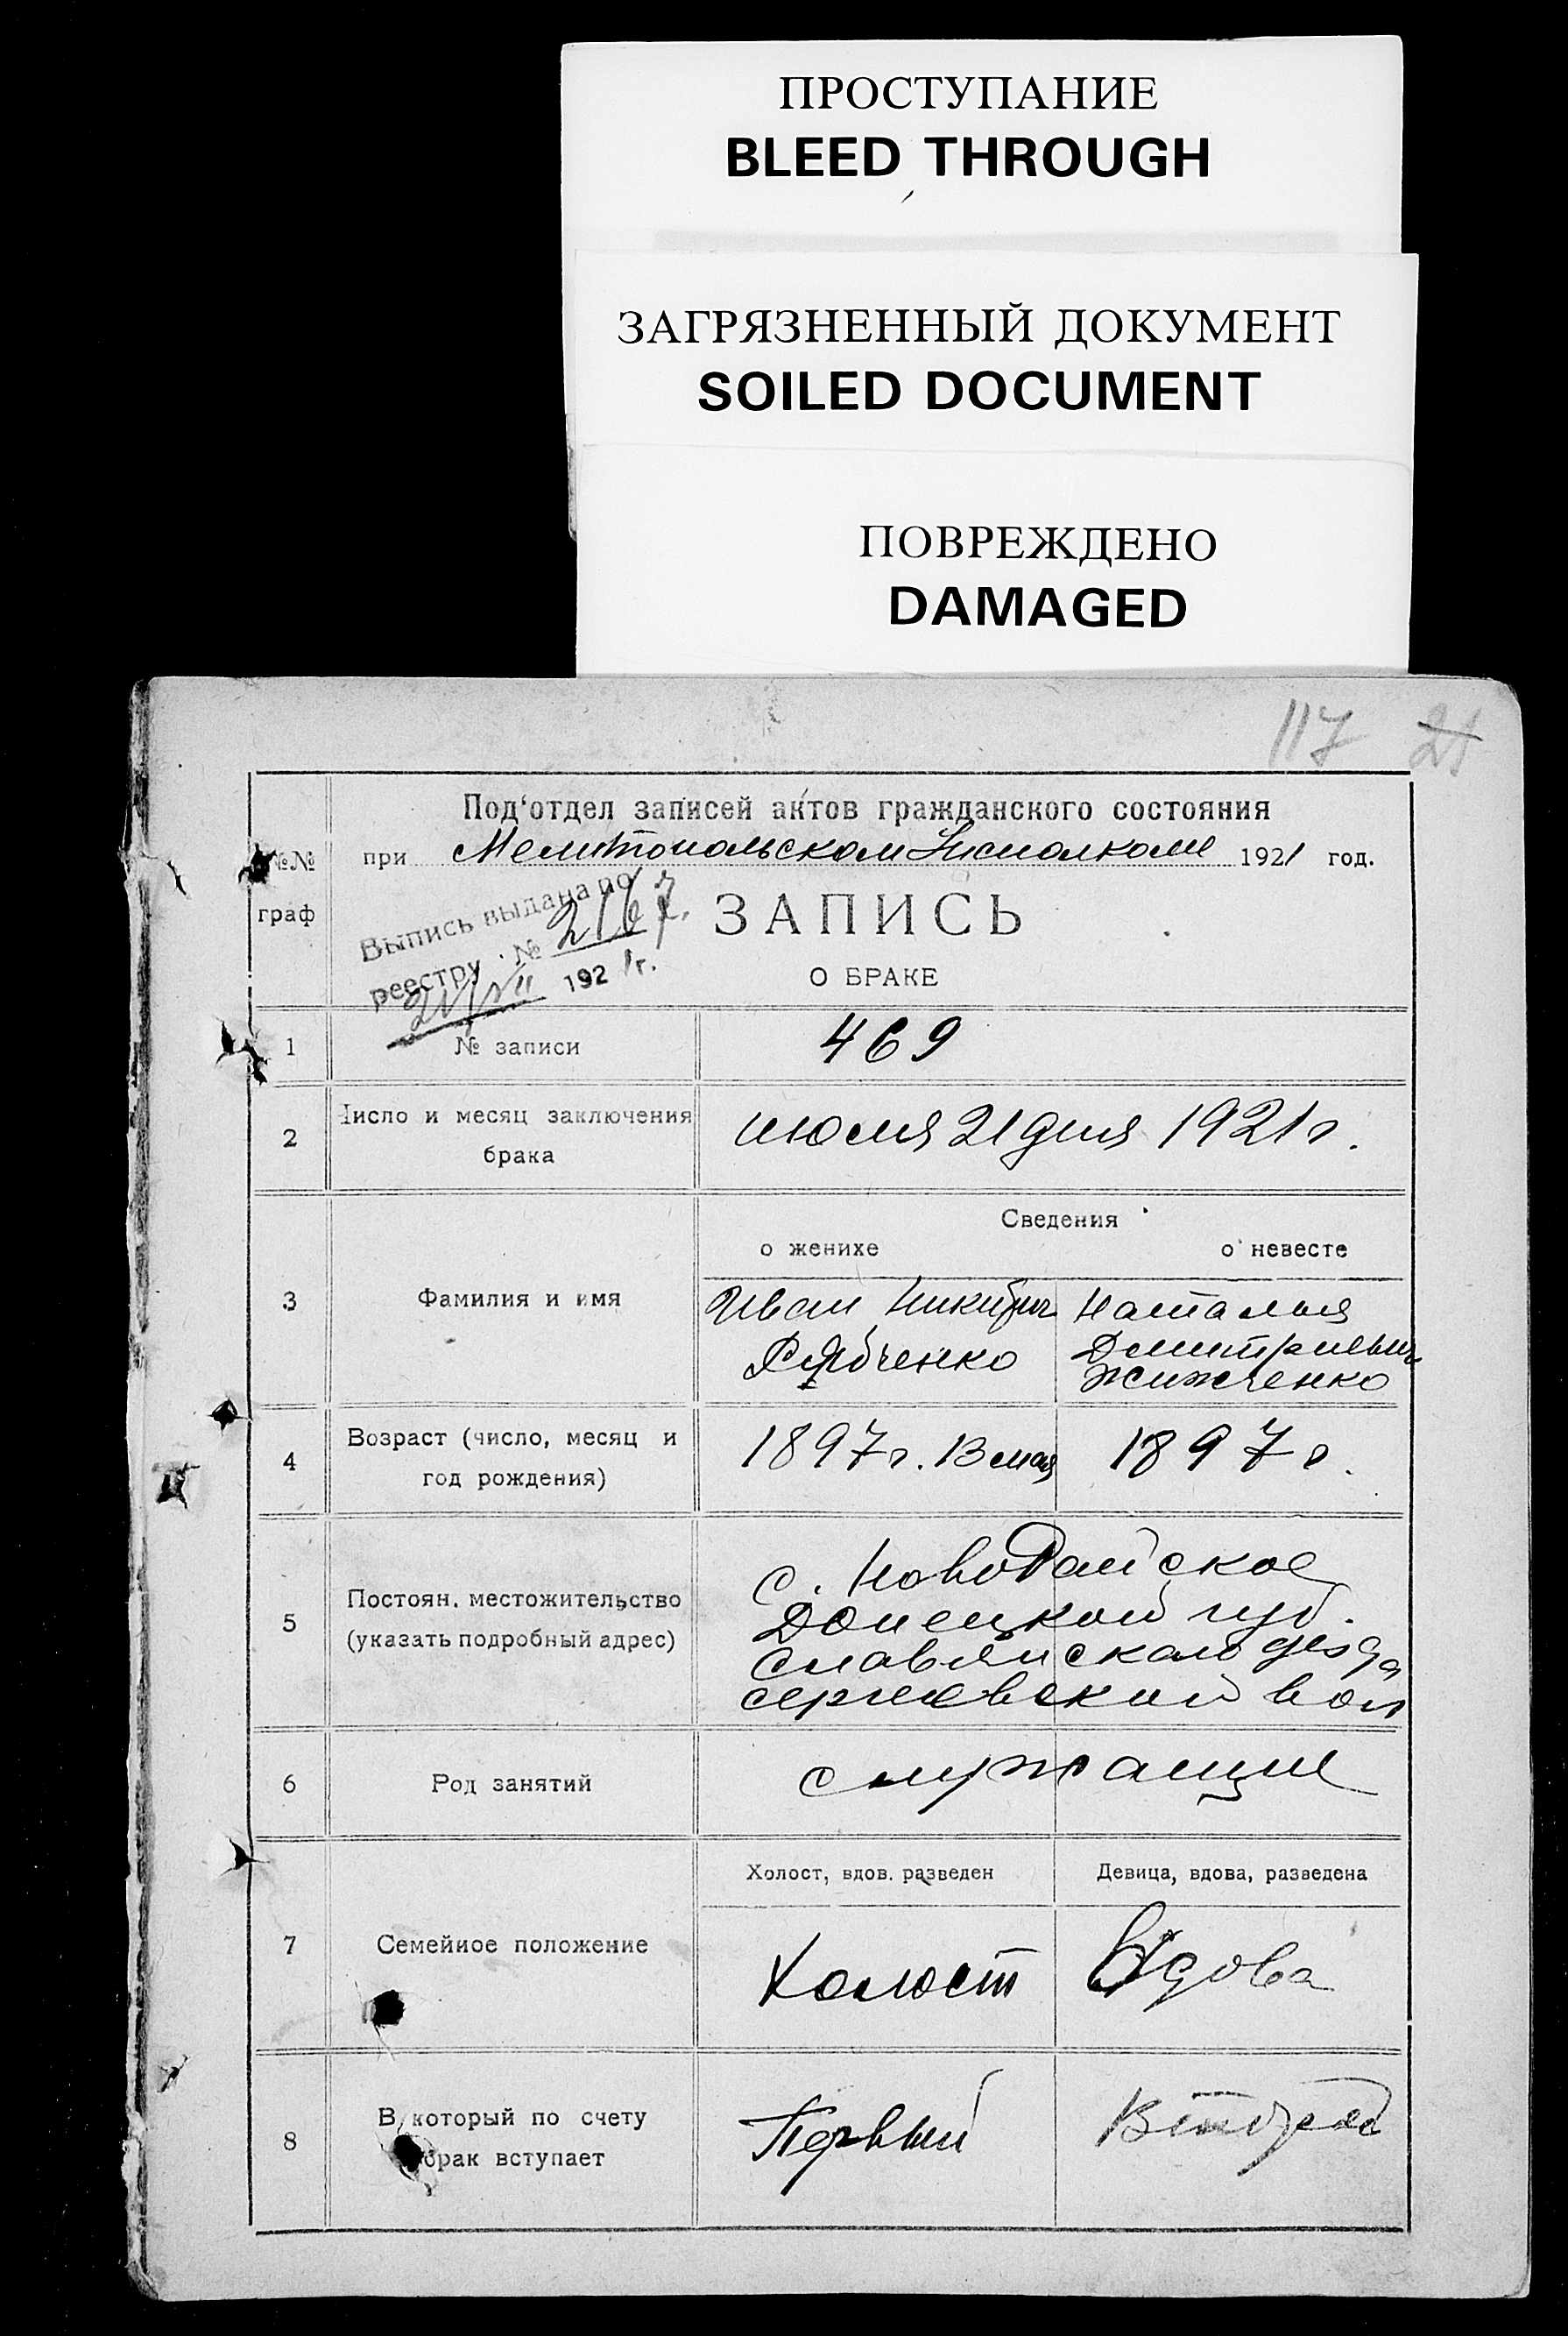 ПРОСТУПАНИЕ
BLEED THROUGH
ЗАГРЯЗНЕННЫЙ ДОКУМЕНТ
SOILED DOCUMENT
ПОВРЕЖДЕНО
DAMAGED
117 21
Под‘отдел записей актов гражданского состояния
№№ при Мелитопольском Исполкоме 1921 год.
граф
Выпись выдана по
реестру № 2167.
21/VII 1921 г.
ЗАПИСЬ
О БРАКЕ
1 № записи 469
2 Число и месяц заключения брака
июля 21 дня 1921 г.
Сведения
о женихе о невесте
3 Фамилия и имя
Иван Никитич
Рябченко
Наталья
Дмитриевна
Жижченко
4 Возраст (число, месяц и
год рождения)
1897 г. 13 мая 1897 г.
5 Постоян. местожительство
(указать подробный адрес)
с. Ново Райское
Донецкой губ.
Славянскаго уезда
сергеевской вол
6 Род занятий служащие
Холост, вдов. разведен Девица, вдова, разведена
7 Семейное положение Холост Вдова
8 В который по счету
брак вступает
Первый Второй